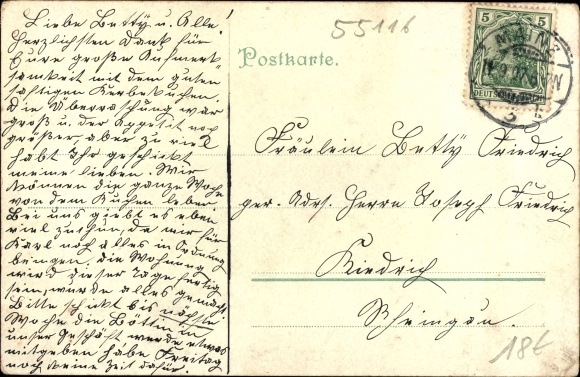 Liebe Betty u. Alle!
Herzlichsten Dank für
Eure große Aufmerk=
samkeit mit dem guten
saftigen Kerbekuchen.
Die Überraschung war
groß u. der Appetit noch
größer, aber zu viel
habt Ihr geschickt
meine lieben. Wir
können die ganze Woche
von dem Kuchen leben.
Bei uns giebt es eben
viel zu tun, da wir für
Karl noch alles in Ordnung
bringen. Die Wohnung
wird dieser Tage fertig
sein, wurde alles gemacht
Bitte schickt bis nächste
Woche die Botin in
unser Geschäft werde etwas
mitgeben habe Freitag
noch keine Zeit dafür.
55116
Postkarte.
5 5
MAINZ
DEUTSCHES REICH
Fräulein Betty Friedrich
per. Adrs. Herrn Joseph Friedrich
Kiedrich
Rheingau.
18€